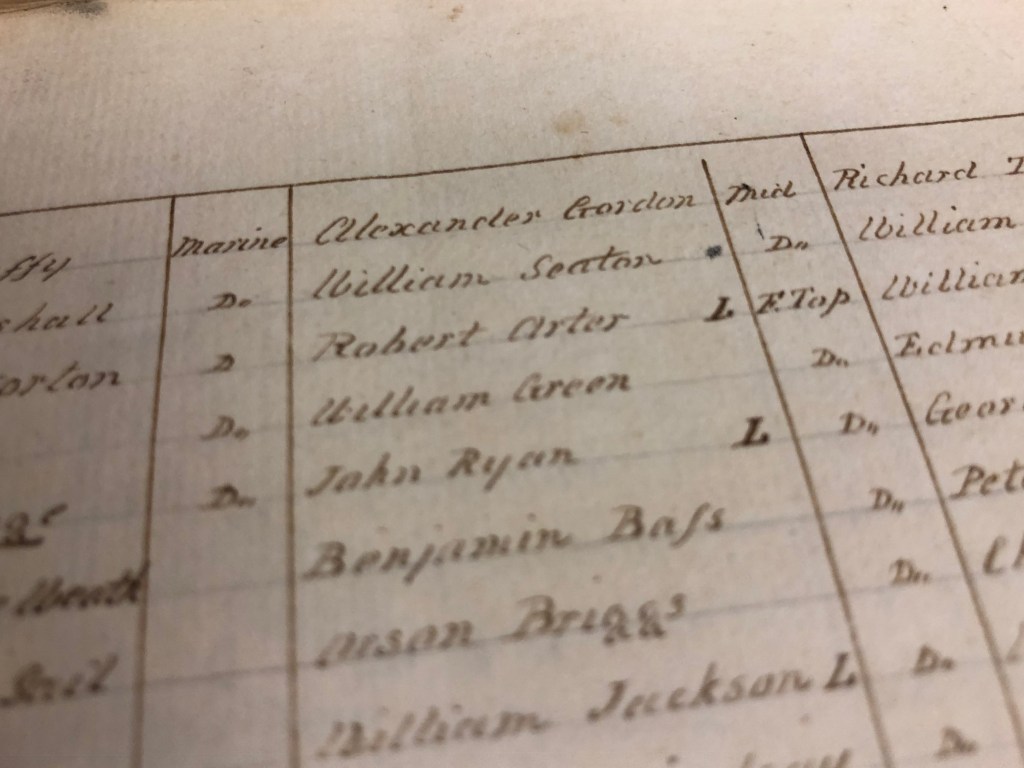 ffy Marine Alexander Gordon Mid Richard
shall Do William Seaton Do William
orton D Robert Arter L F. Top William
Do William Green Do Edmu
Do John Ryan L Do Geor
Benjamin Baſs Do Pet
Orson Briggs Do
William Jackson L Do
Do